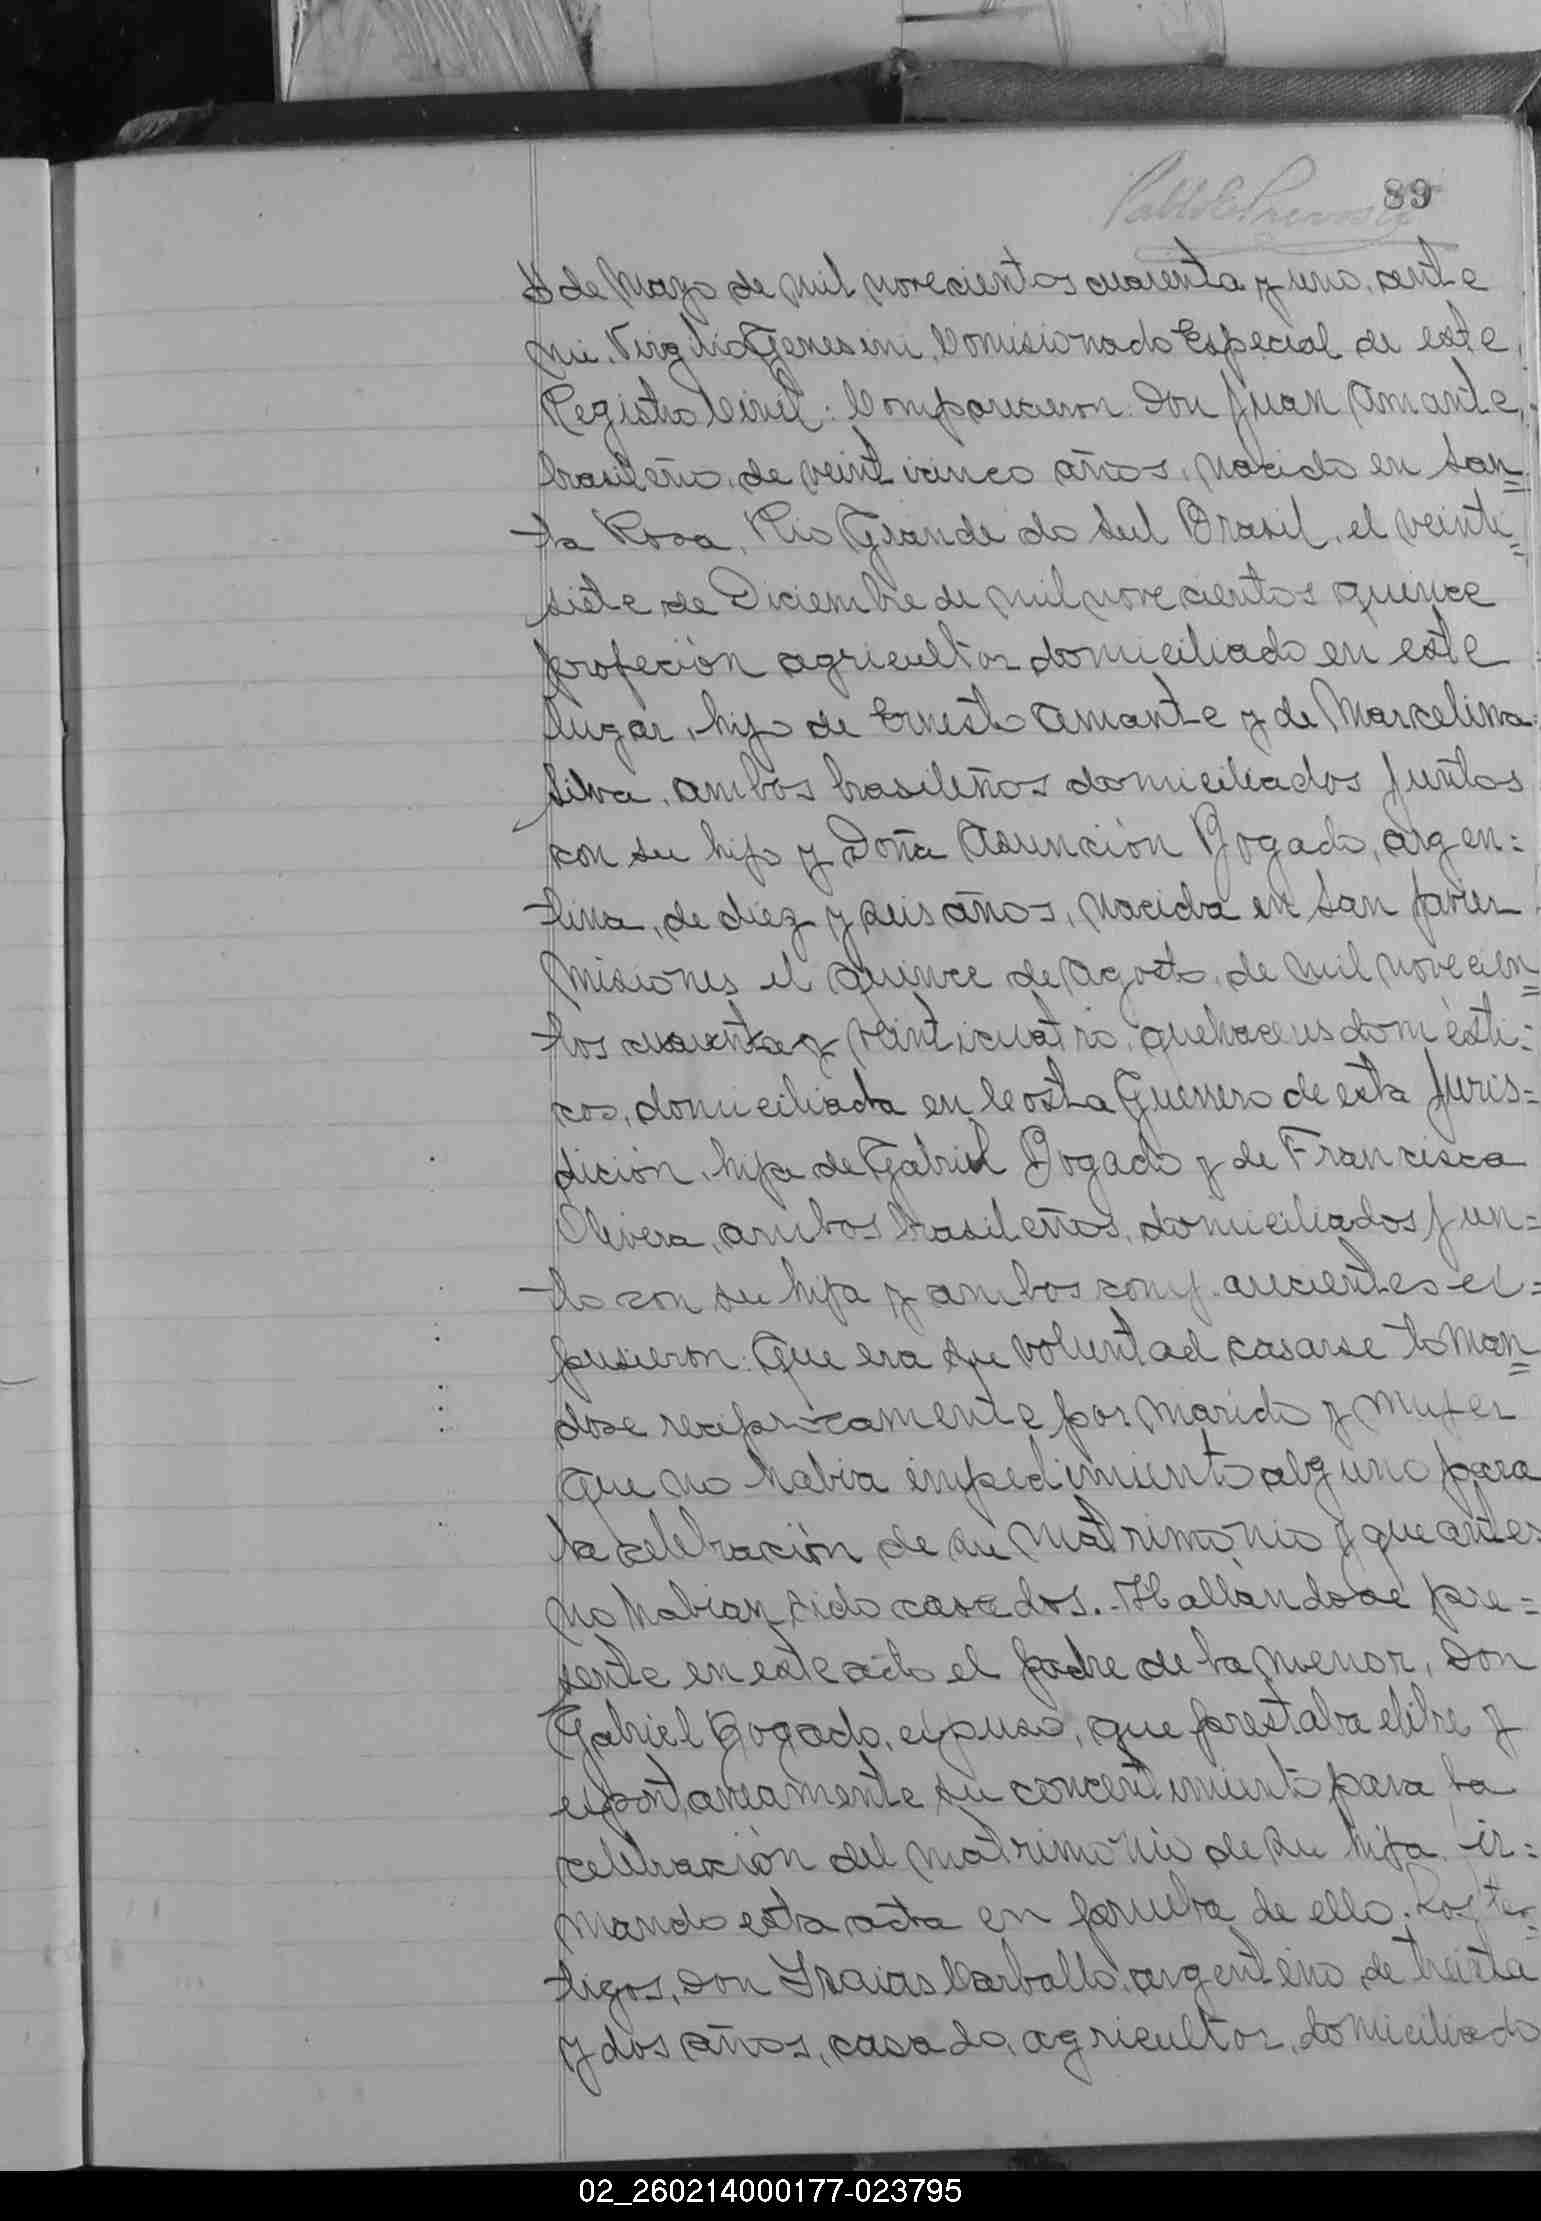 89
de Mayo de mil novecientos cuarenta y uno, ante
mi, Virgilio Genesini, Comisionado Especial de este
Registro Civil: Comparecieron: Don Juan Amante,
brasileño, de veinticinco años, nacido en San=
ta Rosa, Rio Grande do Sul Brasil, el veinti=
siete de Diciembre de mil novecientos quince
profeción agricultor domiciliado en este
lugar, hijo de Ernesto Amante y de Marcelina
Silva, ambos brasileños domiciliados juntos
con su hijo y Doña Asunción Bogado, argen=
tina, de diez y seis años, nacida en San Javier
Misiones el quince de Agosto, de mil novecien=
tos cuarenta y veinticuatro, quehaceres domésti=
cos, domiciliada en Costa Guerrero de esta Juris=
dición, hija de Gabriel Bogado y de Francisca
Olivera, ambos brasileños, domiciliados jun=
to con su hija y ambos comparecientes ex=
pusieron: Que era su voluntad casarse toman=
dose reciprocamente por marido y mujer
que no habia impedimiento alguno para
la celebración de su matrimonio y que antes
no habian sido casados.-Hallándose pre=
sente en este acto el padre de la menor, Don
Gabriel Bogado, expuso, que prestaba libre y
expontaneamente su concentimiento para la
celebración del matrimonio de su hija, fir=
mando esta acta en prueba de ello. Los tes=
tigos, Don Isaias Carballo, argentino, de treinta
y dos años, casado, agricultor, domiciliado
02_260214000177-023795